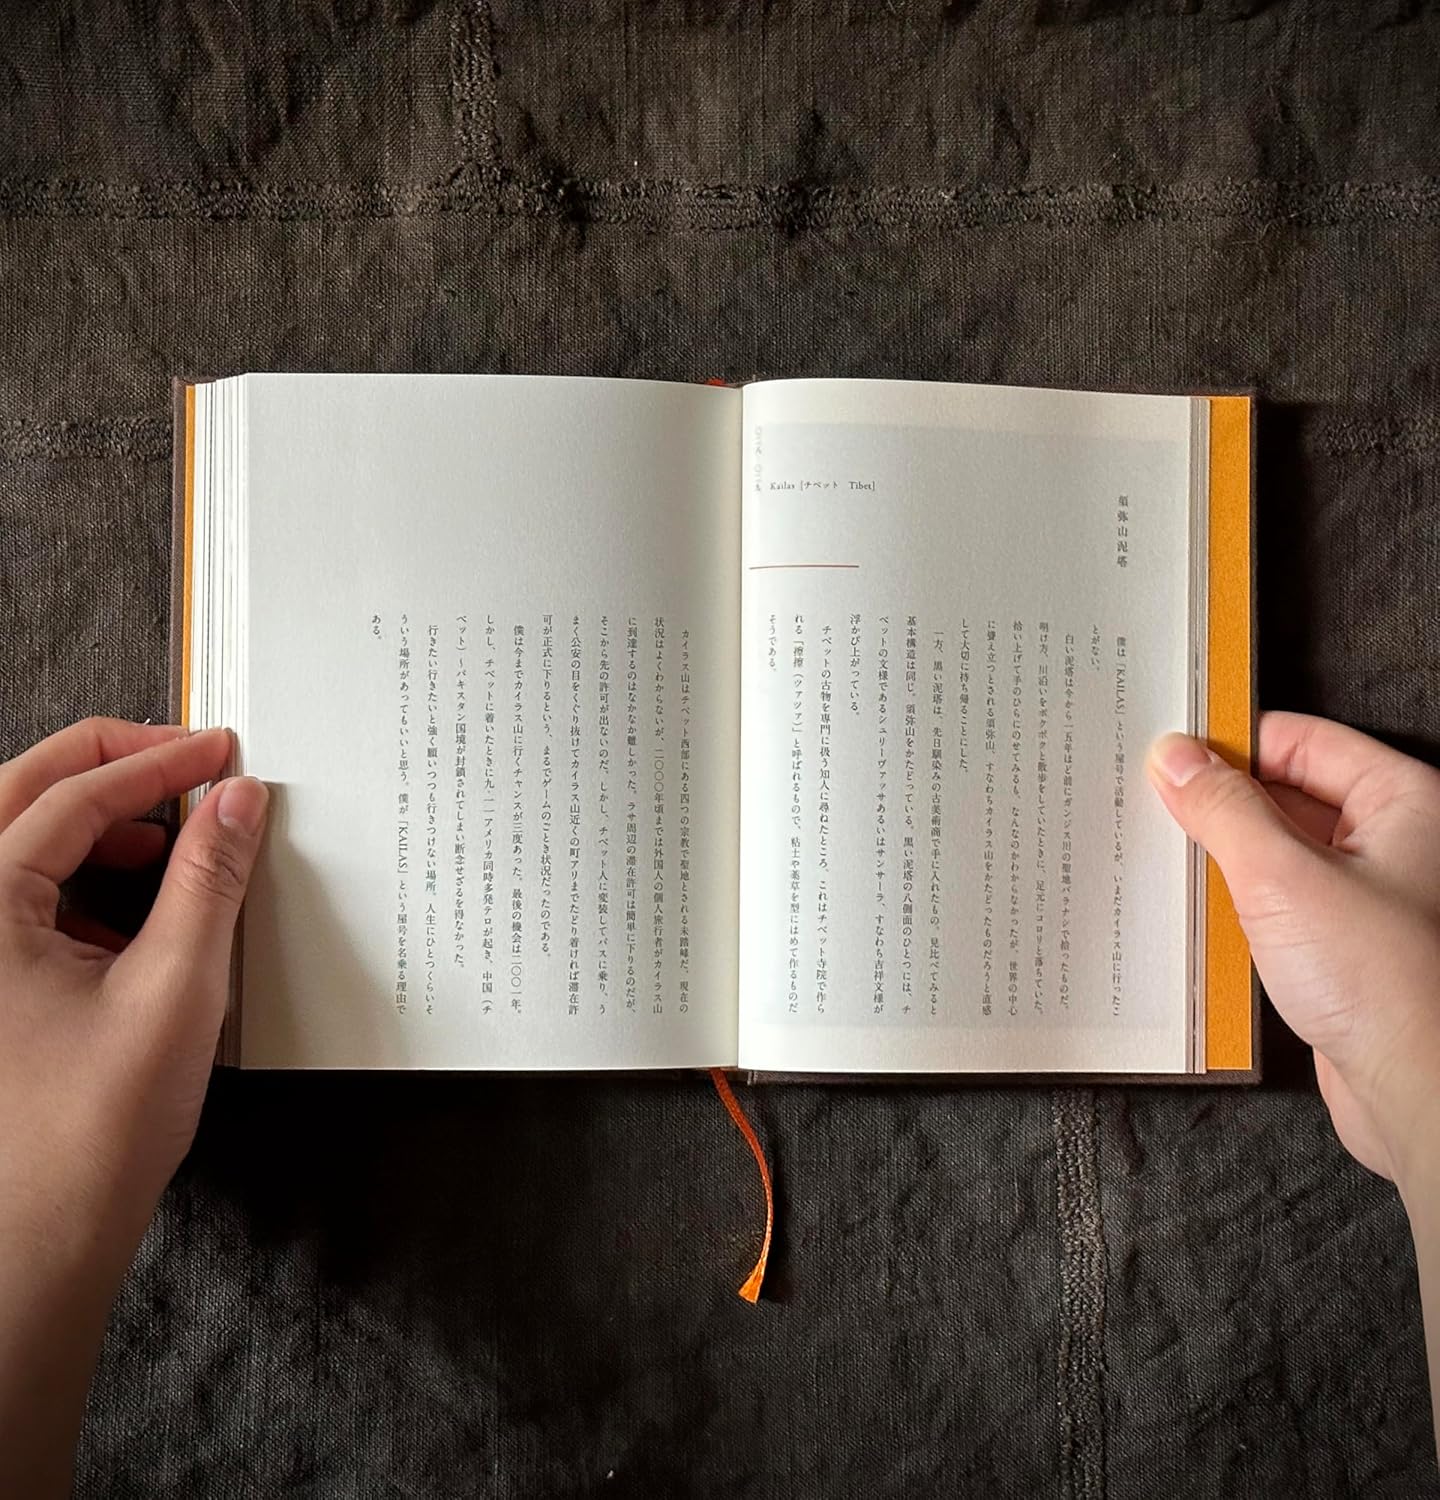 須弥山泥塔
僕は「KAILAS」という屋号で活動しているが、いまだカイラス山に行ったこ
とがない。
白い泥塔は今から一五年ほど前にガンジス川の聖地バラナシで拾ったものだ。
明け方、川沿いをポクポクと散歩をしていたときに、足元にコロリと落ちていた。
拾い上げて手のひらにのせてみるも、なんなのかわからなかったが、世界の中心
に聳え立つとされる須弥山、すなわちカイラス山をかたどったものだろうと直感
して大切に持ち帰ることにした。
一方、黒い泥塔は、先日馴染みの古美術商で手に入れたもの。見比べてみると
基本構造は同じ。須弥山をかたどっている。黒い泥塔の八側面のひとつには、チ
ベットの文様であるシュリーヴァッサあるいはサンサーラ、すなわち吉祥文様が
浮かび上がっている。
チベットの古物を専門に扱う知人に尋ねたところ、これはチベット寺院で作ら
れる「擦擦（ツァツァ）」と呼ばれるもので、粘土や薬草を型にはめて作るものだ
そうである。
Kailas [チベット Tibet]
カイラス山はチベット西部にある四つの宗教で聖地とされる未踏峰だ。現在の
状況はよくわからないが、二〇〇〇年頃までは外国人の個人旅行者がカイラス山
に到達するのはなかなか難しかった。ラサ周辺の滞在許可は簡単に下りるのだが、
そこから先の許可が出ないのだ。しかし、チベット人に変装してバスに乗り、う
まく公安の目をくぐり抜けてカイラス山近くの町アリまでたどり着ければ滞在許
可が正式に下りるという、まるでゲームのごとき状況だったのである。
僕は今までカイラス山に行くチャンスが三度あった。最後の機会は二〇〇一年。
しかし、チベットに着いたときに九・一一アメリカ同時多発テロが起き、中国（チ
ベット）〜パキスタン国境が封鎖されてしまい断念せざるを得なかった。
行きたい行きたいと強く願いつつも行きつけない場所。人生にひとつくらいそ
ういう場所があってもいいと思う。僕が「KAILAS」という屋号を名乗る理由で
ある。